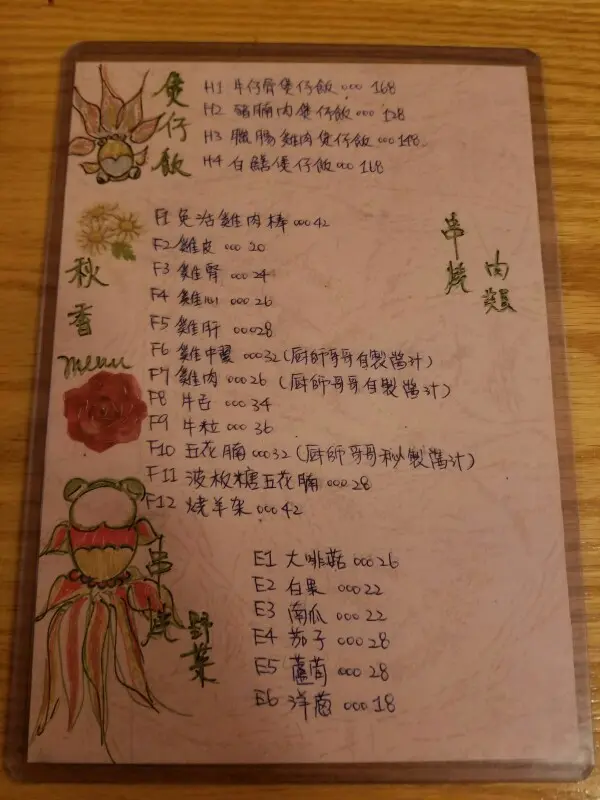 煲仔飯
H1 牛仔骨煲仔飯 ooo 168
H2 豬腩肉煲仔飯 ooo 128
H3 臘腸雞肉煲仔飯 ooo 148
H4 白鱔煲仔飯 ooo 168
串燒
肉類
F1 免治雞肉棒 ooo 42
F2 雞皮 ooo 20
F3 雞腎 ooo 24
F4 雞心 ooo 26
F5 雞肝 ooo 28
F6 雞中翼 ooo 32 (厨師哥哥自製醬汁)
F7 雞肉 ooo 26 (厨師哥哥自製醬汁)
F8 牛舌 ooo 34
F9 牛粒 ooo 36
F10 五花腩 ooo 32 (厨師哥哥秘製醬汁)
F11 波板糖五花腩 ooo 28
F12 燒羊架 ooo 42
秋香
menu
串燒
野菜
E1 大啡菇 ooo 26
E2 白果 ooo 22
E3 南瓜 ooo 22
E4 茄子 ooo 28
E5 蘆筍 ooo 28
E6 洋蔥 ooo 18